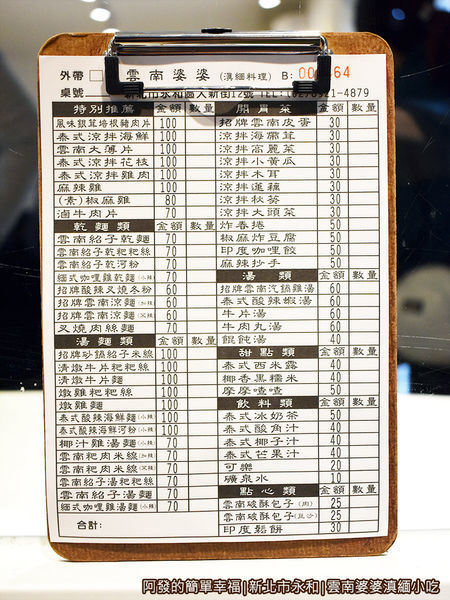 外帶 雲南婆婆(滇緬料理) B:
桌號 新北市永和區人新街12號 TEL:(02)8921-4879
特別推薦 金額 數量
風味銀茸培根豬肉片 100
泰式涼拌海鮮 100
雲南大薄片 100
泰式涼拌花枝 100
泰式涼拌雞肉 100
麻辣雞 100
(素)椒麻雞 80
滷牛肉片 70
乾麵類 金額 數量
雲南紹子乾麵 70
雲南紹子乾粑粑絲 70
雲南紹子乾河粉 70
緬式咖哩雞乾麵(小辣) 70
招牌酸辣叉燒冬粉 60
招牌雲南涼麵(加辣) 60
招牌雲南涼麵(不辣) 60
叉燒肉絲麵 70
湯麵類 金額 數量
招牌砂鍋紹子米線 100
清燉牛片粑粑絲 100
清燉牛片麵 100
燉雞粑粑絲 100
燉雞麵 100
泰式酸辣海鮮麵(小辣) 100
泰式酸辣海鮮河粉(小辣) 100
椰汁雞湯麵(小辣) 70
雲南粑肉米線(加辣) 70
雲南粑肉米線(不辣) 70
雲南紹子湯粑粑絲 70
雲南紹子湯麵 70
緬式咖哩雞湯麵(小辣) 70
合計:
開胃菜 金額 數量
招牌雲南皮蛋 30
涼拌海帶茸 30
涼拌高麗菜 30
涼拌小黃瓜 30
涼拌木耳 30
涼拌蓮藕 30
涼拌秋葵 30
涼拌大頭菜 30
炸香捲 50
椒麻炸豆腐 50
印度咖哩餃 50
麻辣抄手 50
湯類 金額 數量
招牌雲南汽鍋雞湯 50
泰式酸辣蝦湯 50
牛片湯 50
牛肉丸湯 50
餛飩湯 40
甜點類 金額 數量
泰式西米露 40
椰香黑糯米 40
摩摩喳喳 50
飲料類 金額 數量
泰式冰奶茶 50
泰式酸角汁 40
泰式椰子汁 40
泰式芒果汁 40
可樂 20
礦泉水 20
點心類 金額 數量
雲南破酥包子(肉) 25
雲南破酥包子(豆沙) 25
印度鬆餅 30
阿發的簡單幸福|新北市永和|雲南婆婆滇緬小吃